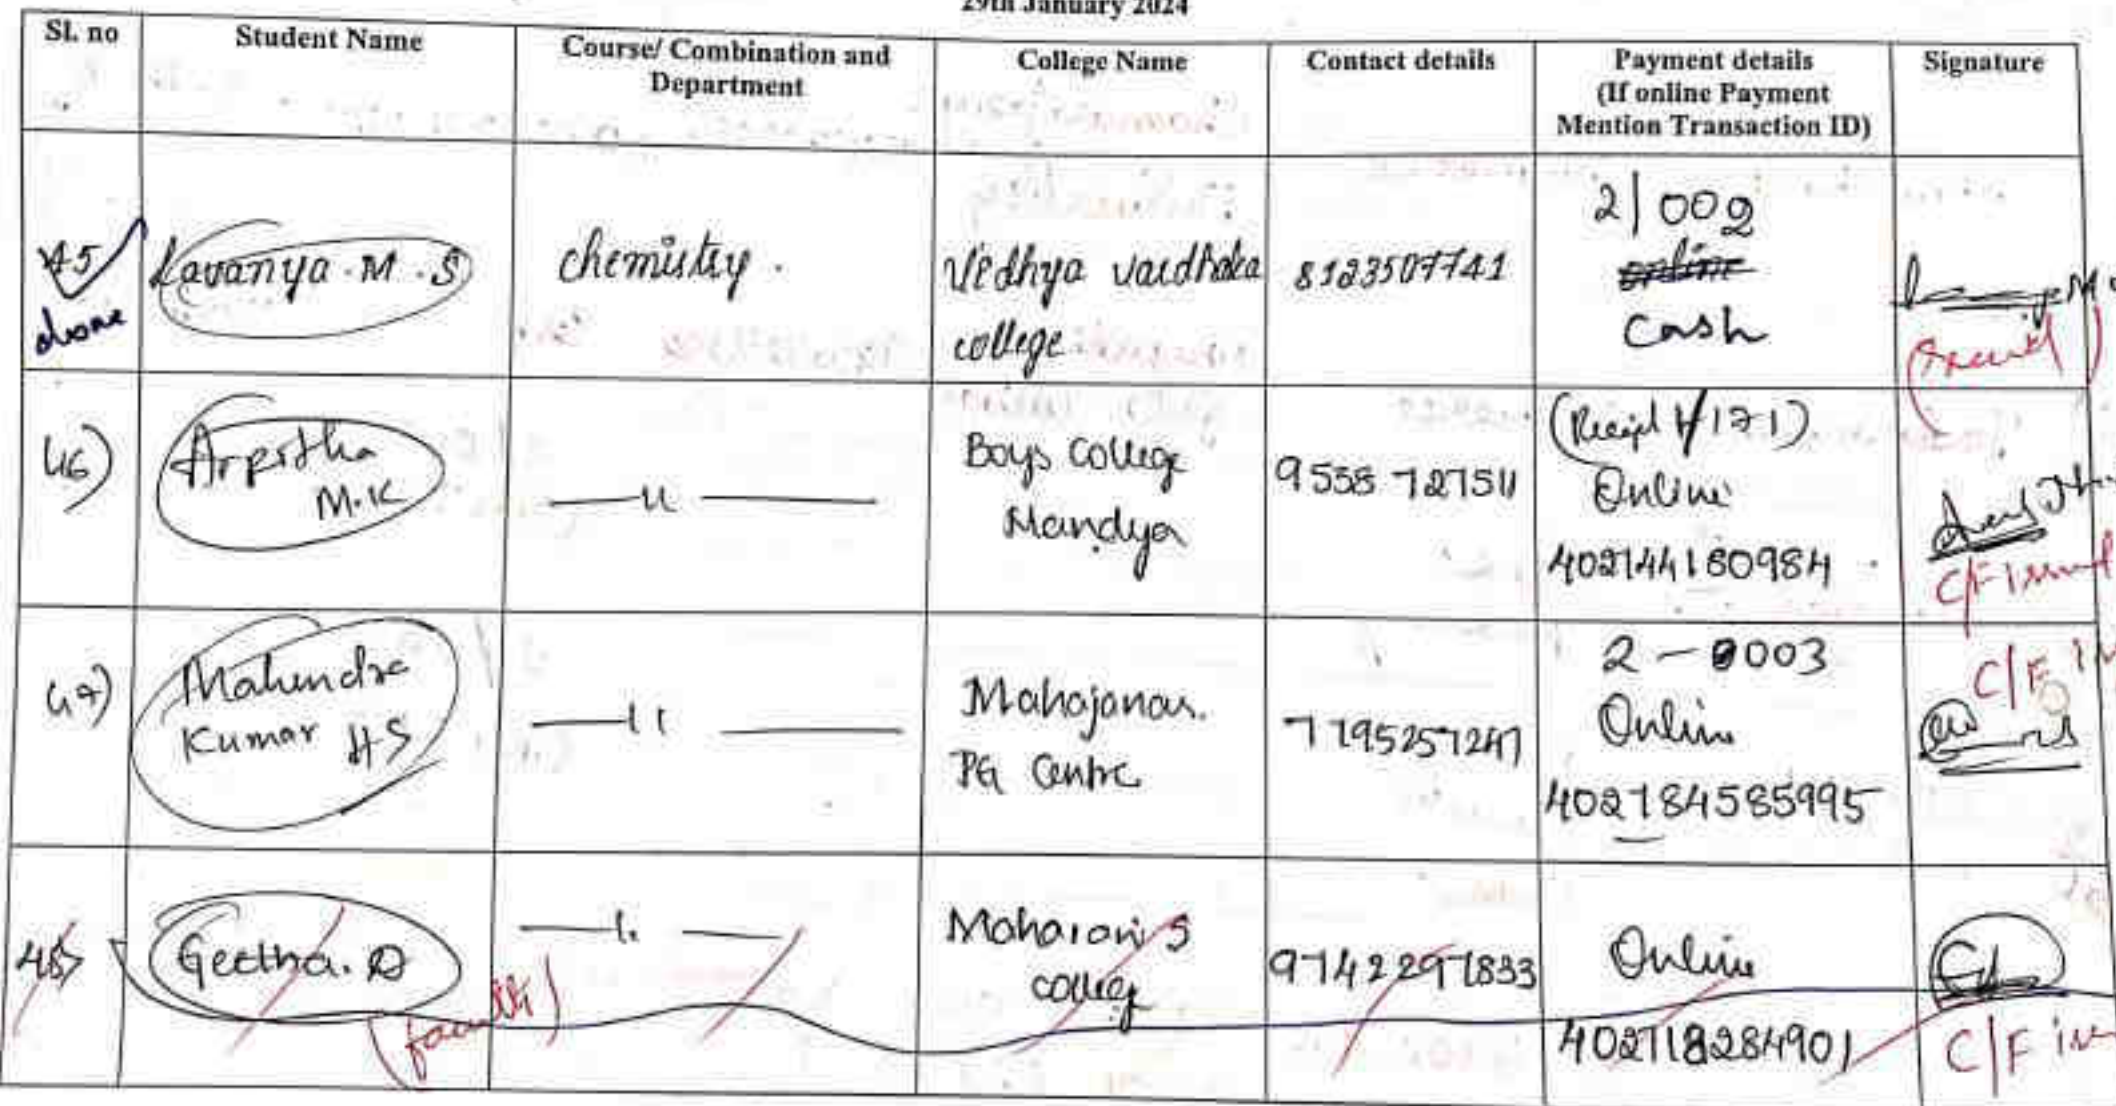 29th January 2024
Sl. no
Student Name
Course/ Combination and
Department
College Name
Contact details
Payment details
(If online Payment
Mention Transaction ID)
Signature
45
done
Lavanya . M . S
chemistry .
Vidhya vardhaka
college.
8123507741
2/002
online
Cash
46)
Arpitha
M.K
—— 〃 ——
Boys College
Mandya
9538 727511
(Receipt 1/171)
Online
402144180984
C/F issued
47)
Mahendra
Kumar H S
—— 〃 ——
Mahajanas.
PG Centre
7795257247
2 - 0003
Online
402784585995
C/F
48)
Geetha. D
(faculty)
—— 〃 ——
Maharani's
college
9742297833
Online
402718284901
C/F